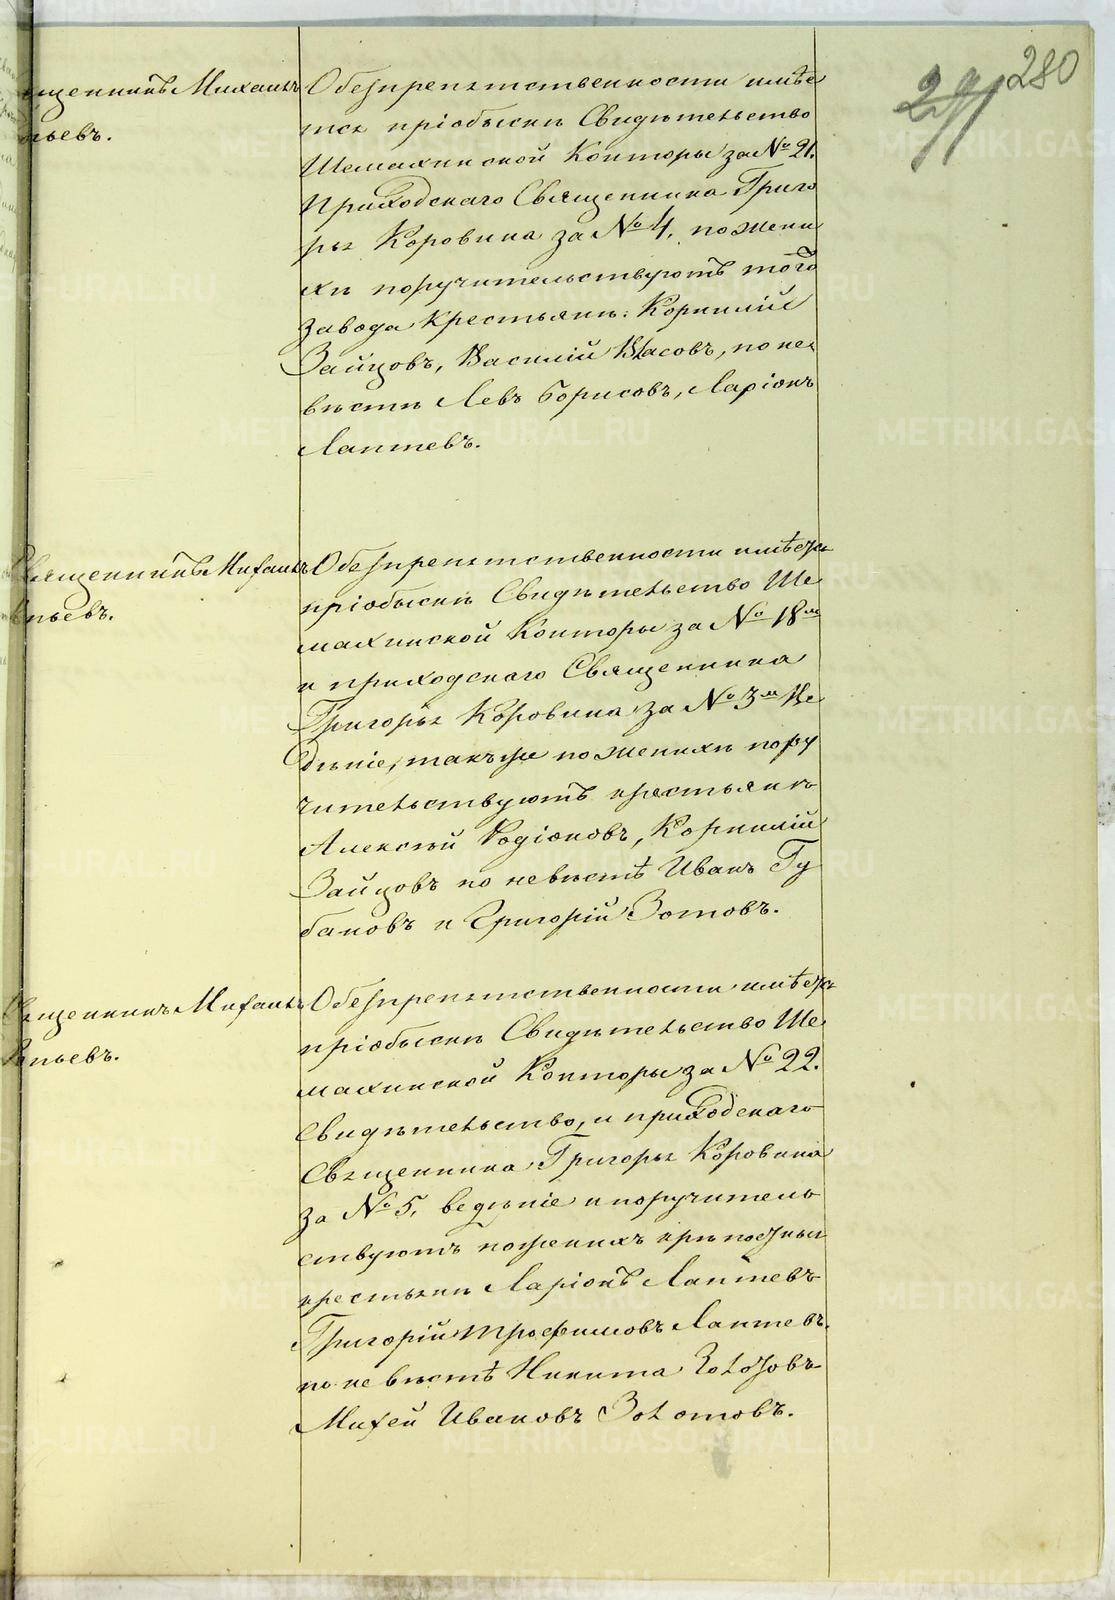 280
291
щенникъ Михаилъ
пьевъ.
Обезпрепятственности имѣе
тся пріобыскѣ Свидѣтельство
Шемахинской Конторы за № 21.
Приходскаго Священника Григо
рья Коровина за № 4, по жени
хѣ поручительствуютъ того
завода крестьянѣ: Корнилій
Зайцовъ, Василій Власовъ, по не
вѣстѣ Левъ Борисовъ, Ларіонъ
Лаптевъ.
Священникъ Михаилъ
пьевъ.
Обезпрепятственности имѣется
пріобыскѣ Свидѣтельство Ше
махинской Конторы за № 18м
и приходскаго Священника
Григорья Коровина за № 3м Ве
дѣніе, такъже по женихѣ пору
чительствуютъ крестьянъ
Алексѣй Родіоновъ, Корнилій
Зайцовъ по невѣстѣ Иванъ Гу
бановъ и Григорій Зотовъ.
Священникъ Михаилъ
пьевъ.
Обезпрепятственности имѣется
пріобыскѣ Свидѣтельство Ше
махинской Конторы за № 22.
Свидѣтельство, и приходскаго
Священника Григорья Коровина
за № 5, ведѣніе и поручитель
ствуютъ по женихѣ крѣпостныи
крестьянѣ Ларіонъ Лаптевъ
Григорій Трофимовъ Лаптевъ.
по невѣстѣ Никита Золотовъ
Михей Ивановъ Золотовъ.
METRIKI.GASO-URAL.RU